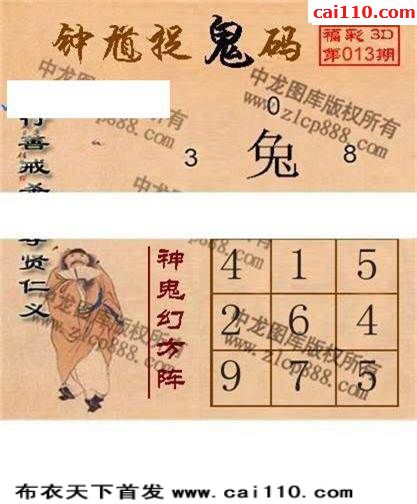 cai110.com
钟馗捉鬼码
福彩3D
第013期
中龙图库版权所有
www.zlcp888.com
0
3 兔 8
行善戒
尊贤仁义
神鬼幻方阵
4 1 5
2 6 4
9 7 5
中龙图库版权所有
www.zlcp888.com
布衣天下首发 www.cai110.com